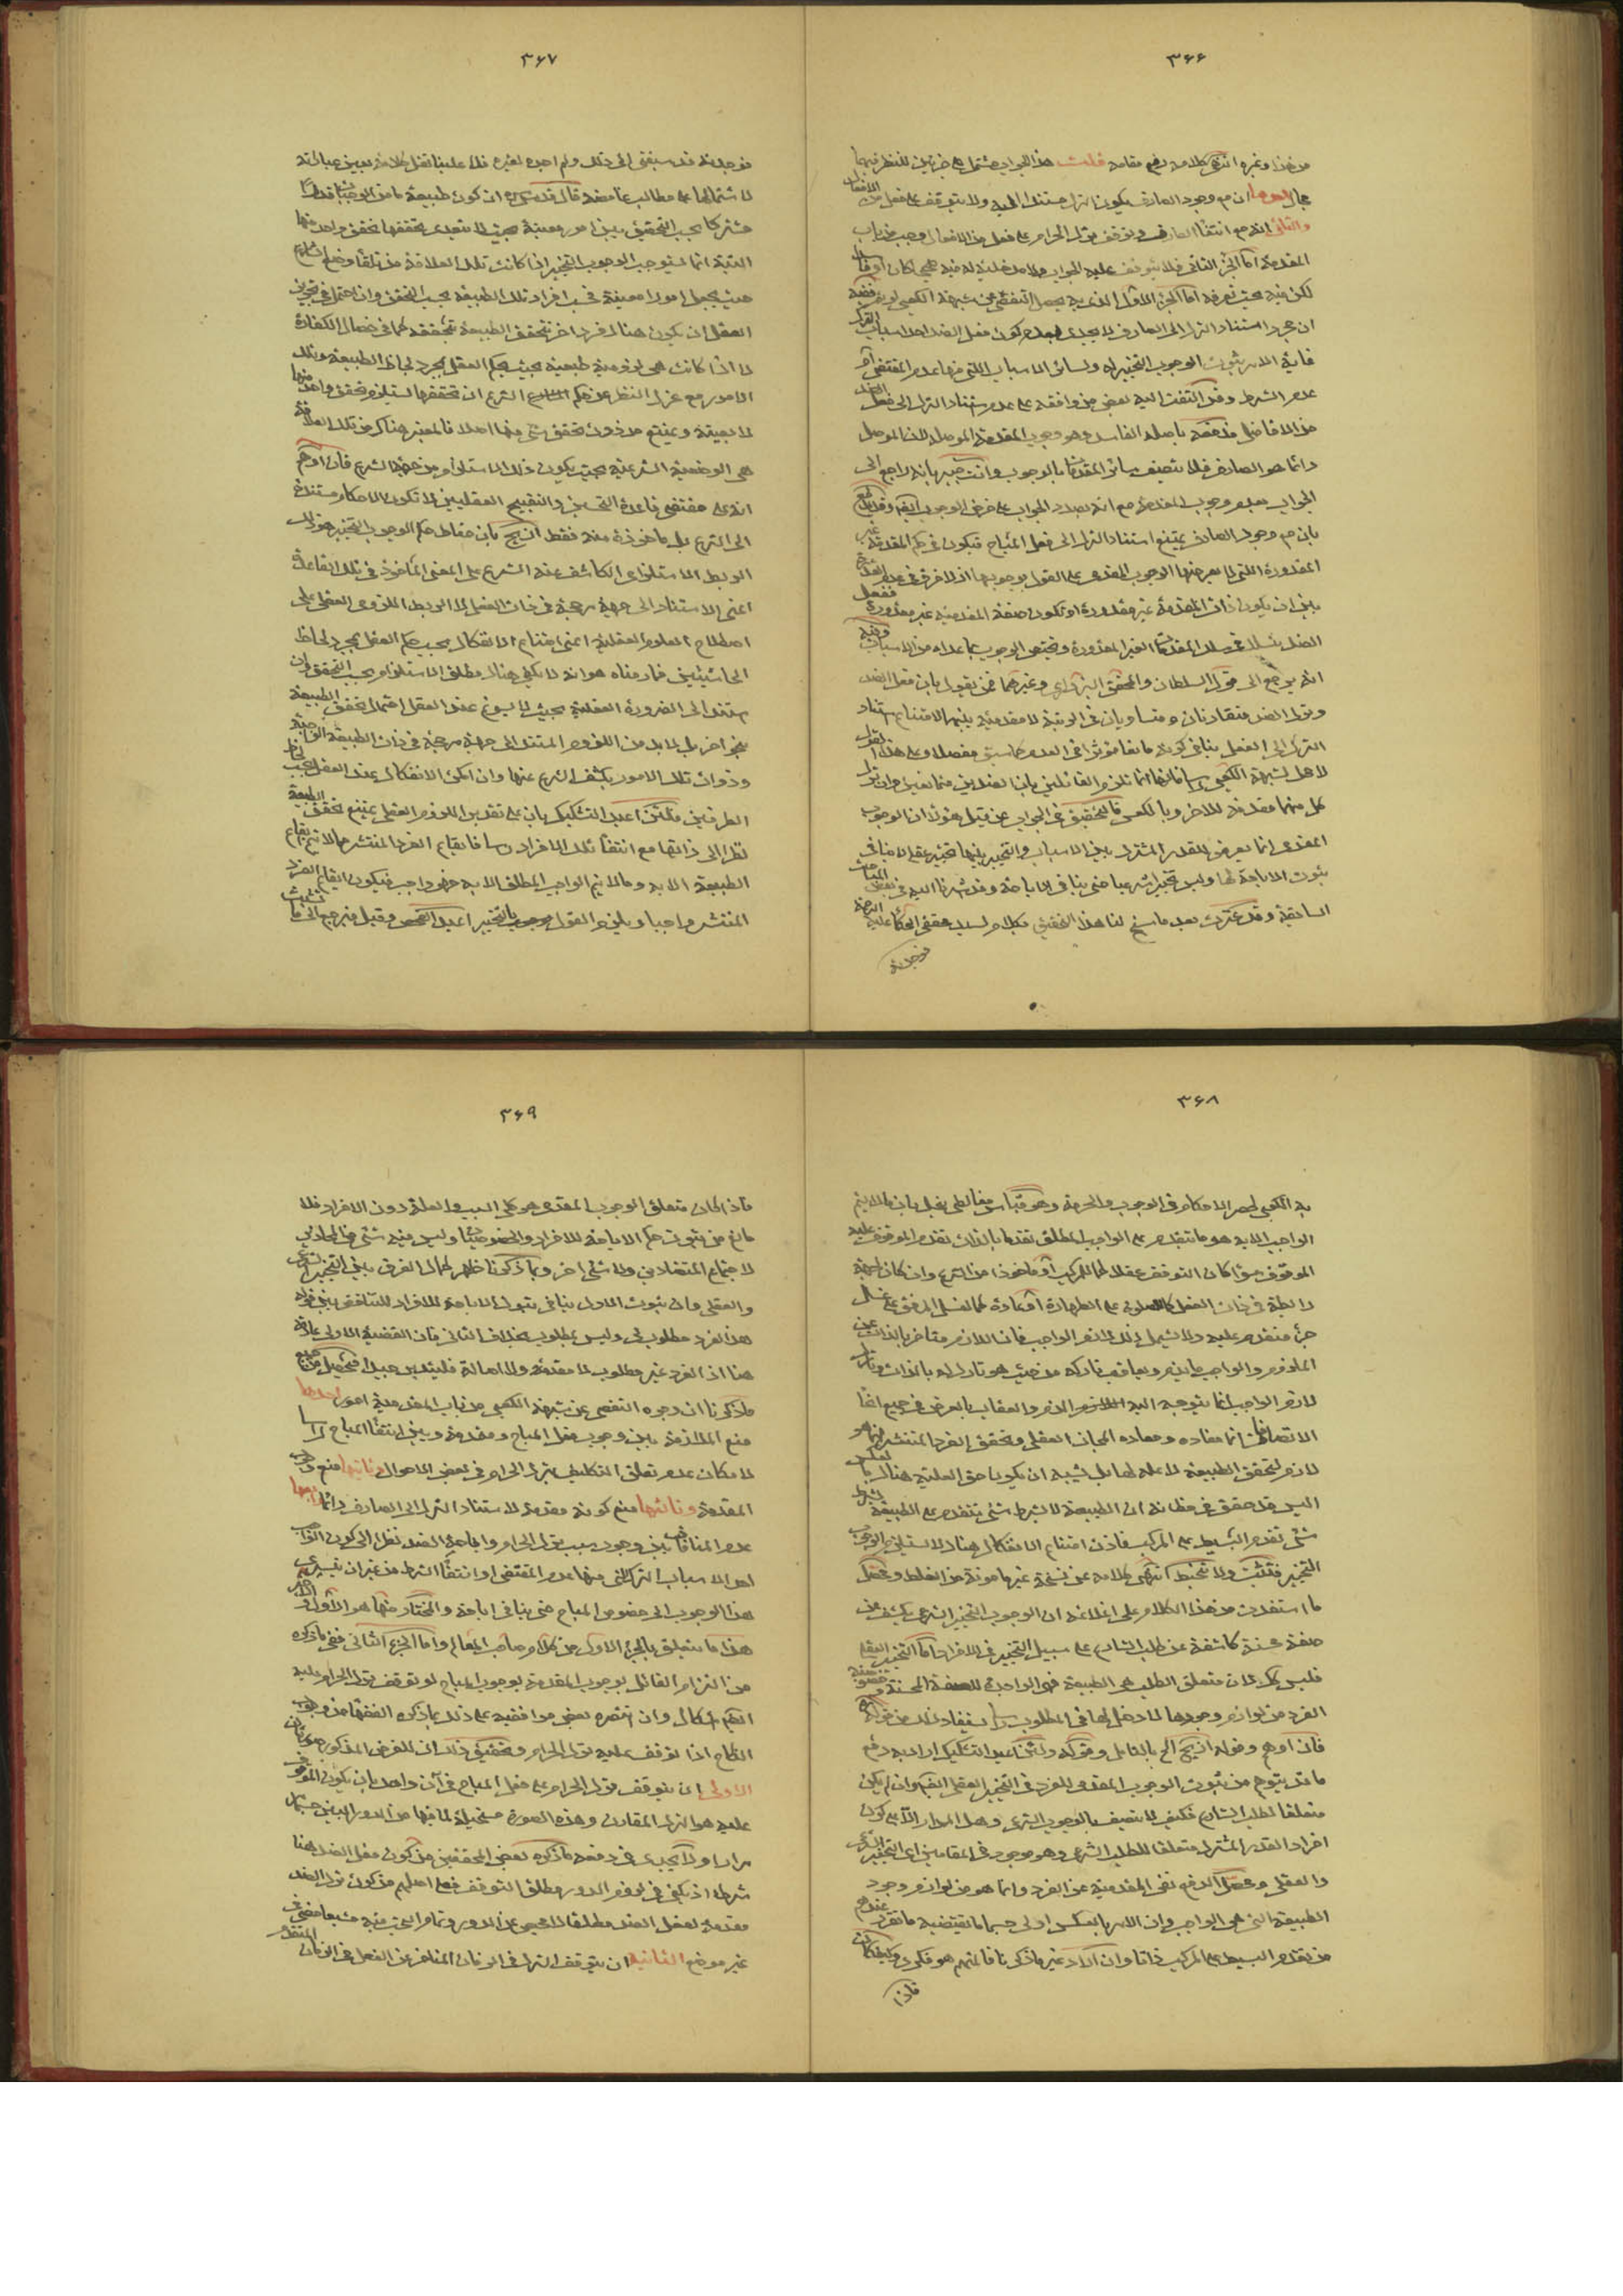 ٣۶۶
من هذا وغيره انتهى كلامه رفع مقامه قلت هذا الجواب مشتمل على جزئين للنظر فيهما
مجال احدهما ان مع وجود الصارف يكون الترك مستندا اليه ولا يتوقف على فعل من الافعال
والثاني انه مع انتفاء الصارف وتوقف ترك الحرام على فعل من الافعال وجب من باب
المقدمة اما الجزء الثاني فلا يتوقف عليه الجواب
لكن فيه بحث تعرفه اما الجزء الاول الذي به يحصل التفصي عن شبهة الكعبي
ان مجرد استناد الترك الى الصارف لا يجدى بعد كون فعل الضد احد اسباب الترك
غاية الامر ثبوت الوجوب التخييري له ولسائر الاسباب التي منها عدم المقتضى او
عدم الشرط وقد التفت اليه بعض من وافقه على عدم استناد الترك الى فعل الضد
من الافاضل فدفعه باصله الفاسد وهو وجوب المقدمة الموصلة لان الموصل
دائما هو الصارف فلا يتصف سائر المقدمات بالوجوب وانت خبير بانه راجع الى
الجواب بعدم وجوب المقدمة مع انه بصدد الجواب على فرض الوجوب
بان مع وجود الصارف يمتنع استناد الترك الى فعل المباح فيكون في حكم المقدمة غير
المقدورة التي لا يعرضها الوجوب المقدمى على القول بوجوبها اذ لا فرق في عدم القدرة
بين ان يكون ذات المقدمة غير مقدورة او تكون صفة المقدمية غير مقدورة ففعل
الضد في سلك المقدمات الغير المقدورة ويختص الوجوب بما عداه من الاسباب وفيه
انه يرجع الى قول السلطان والمحقق وغيرهما ممن يقول بان فعل الضد
وترك الضد متقارنان ومتساويان في الرتبة لا مقدمية بينهما لامتناع استناد
الترك الى الفعل ينافي كونه مانعا مؤثرا في العدم كما سبق مفصلا وعلى هذا القول
لا اصل لشبهة الكعبي راسا
كل منهما مقدمة للاخر وبالعكس فالتحقيق في الجواب عن قبل هؤلاء ان الوجوب
المقدمى انما يعرض للقدر المشترك بين الاسباب والتخيير بينها تخيير عقلى لا ينافي
ثبوت الاباحة لها وليس تخييرا شرعيا حتى ينافي الاباحة وقد اشرنا اليه في بعض المباحث
السابقة وقد عثرت بعد ما سنح لنا هذا التحقيق بكلام لسيد محقق الحكماء عليه الرحمة
فوجدته
٣۶٧
فوجدته قد سبقني الى ذلك ولم اجده لغيره فلا علينا نقل كلامه بعين عبارته
لاشتمالها على مطالب غامضة قال قدس سره ان كون طبيعة ما من الواجبات قدرا
مشتركا بحسب التحقيق بين امور معينة بحيث لا يتعدى تحققها تحقق واحد منها
البتة انما يستوجب الوجوب التخييري اذا كانت تلك العلاقة من تلقاء وضع الشارع
حيث يجعل امورا معينة في افراد تلك الطبيعة بحسب التحقق وان احتمل في تجويز
العقل ان يكون هناك فرد اخر تتحقق الطبيعة بتحققه كما في خصال الكفارة
لا اذا كانت هى لزومية طبيعية بحيث يحكم العقل بمجرد لحاظ الطبيعة وتلك
الامور مع عزل النظر عن حكم الشرع ان تحققها يستلزم تحقق واحد منها
لا بعينه ويمتنع من دون تحقق شئ منها اصلا فالمعتبر هناك من تلك العلاقة
هى الوضعية الشرعية بحيث يكون ذلك الاستلزام من جهة الشرع فان اوهم
انه على مقتضى قاعدة التحسين والتقبيح العقليين لا تكون الاحكام مستندة
الى الشرع بل ماخوذة منه فقط ازيح بان مناط حكم الوجوب التخييري هو ذلك
الربط الاستلزامى الكاشف عنه الشرع على المعنى المأخوذ في تلك القاعدة
اعنى الاستناد الى جهة مرجحة في ذات الفعل لا الربط اللزومى العقلى على
اصطلاح العلوم العقلية اعنى امتناع الانفكاك بحسب حكم العقل بمجرد لحاظ
الحاشيتين فما رمناه هو انه لا يكفى هناك مطلق الاستلزام بحسب التحقق وان
استند الى الضرورة العقلية بحيث لا يسوغ عند العقل احتمال تحقق الطبيعة
بنحو اخر بل لا بد من اللزوم المستند الى جهة مرجحة في ذات الطبيعة الواجبة
وذوات تلك الامور يكشف الشرع عنها وان امكن الانفكاك عند العقل بحسب لحاظ
الطرفين ولئن اعيد التشكيك بان على تقدير اللزوم العقلى يمتنع تحقق الطبيعة
نظرا الى ذاتها مع انتفاء تلك الافراد راسا فايقاع الفرد المنتشر مما لا يتم ايقاع
الطبيعة الا به وما لا يتم الواجب المطلق الا به فهو واجب فيكون ايقاع الفرد
المنتشر واجبا ويلزم القول بوجوب التخيير اعيد الفحص وقيل فنرجع الى ما تشبث
٣۶٨
به الكعبي لحصر الاحكام في الوجوب والحرمة وهو قياس مغالطى يقبل بان ما لا يتم
الواجب الا به هو ما يتقدم على الواجب المطلق تقدما بالذات تقدم الموقوف عليه
الموقوف سواء كان التوقف عقلا كما للمركب او ماخوذا من الشرع وان كان لجهة
رابطة في ذات الفعل كالصلوة على الطهارة او عادة كما لغسل المرفق على غسل
جزء متقدم عليه ولا يشمل ذلك لازم الواجب فان اللازم متأخر بالذات عن
الملزوم والواجب ما يذم ويعاقب تاركه من حيث هو تارك له بالذات وتارك
لازم الواجب انما يتوجه اليه الذم والعقاب بالعرض في جميع انحاء
الاتصافات انما مفاده ومعاده المجاز العقلى وتحقق الفرد المنتشر انما هو
لازم لتحقق الطبيعة لا علة لها بل يشبه ان يكون حق العلية هناك بالعكس
اليس قد حقق في مظانه ان الطبيعة لا بشرط شئ تتقدم على الطبيعة بشرط
شئ تقدم البسيط على المركب فاذن امتناع الانفكاك هناك لا يستلزم الوجوب
التخييرى فتثبت ولا تتخبط انتهى كلامه عن نسخة غير مامونة من الغلط ومحصل
ما استفدت من هذا الكلام على اغلاقه ان الوجوب التخييرى الشرعى يكشف عن
صفة محسنة كاشفة عن طلب الشارع على سبيل التخيير في الافراد اما التخيير العقلى
فليس كك لان متعلق الطلب هى الطبيعة فهى الواجدة للصفة المحسنة وخصوصية
الفرد من لوازم وجودها لا دخل لها في المطلوب راسا يستفاد ذلك من قوله
فان اوهم وقوله ازيح الخ بالتامل وقوله ولئن اعيد التشكيك اراد به دفع
ما قد يتوهم من ثبوت الوجوب المقدمى للفرد في التخيير العقلى ايضا وان لم يكن
متعلقا لطلب الشارع فكيف لا يتصف بالوجوب الشرعى وهل المدار الا على كون
افراد القدر المشترك متعلقا للطلب الشرعى وهو موجود في المقامين اى التخيير الشرعى
والعقلى ومحصل الدفع نفى المقدمية عن الفرد وانما هو من لوازم وجود
الطبيعة التى هى الواجب وان الامر بالعكس اولى حسبما يقتضيه ما تقرر عندهم
من تقدم البسيط على المركب ذاتا وان اراد غير ما ذكرنا فالمتهم هو فكرى وكيف كان
فاذا
٣۶٩
فاذا كان متعلق الوجوب المقدمى هو كلى السبب والعلة دون الافراد فلا
مانع من ثبوت حكم الاباحة للافراد والخصوصيات وليس فيه شئ من المحاذير
لا اجتماع المتضادين ولا شئ اخر وبما ذكرنا ظهر كمال الفرق بين التخيير الشرعى
والعقلى وان ثبوت الاول ينافي ثبوت الاباحة للافراد للتناقض بين قوله
هذا الفرد مطلوب لى وليس بمطلوب بخلاف الثانى فان القضية الاولى صادقة
هنا اذ الفرد غير مطلوب لا مقدمة ولا اصالة فليتدبر جيدا فتحصل من جميع
ما ذكرنا ان وجوه التفصى عن شبهة الكعبي من باب المقدمية امور احدها
منع الملازمة بين وجوب فعل المباح ومقدمة وبين انتفاء المباح راسا
لامكان عدم تعلق التكليف بترك الحرام في بعض الاحوال وثانيها منع وجوب
المقدمة وثالثها منع كونه مقدمة لاستناد الترك الى الصارف دائما رابعها
عدم المنافات بين وجوب سبب ترك الحرام واباحة الضد نظرا الى كون الواجب
احد الاسباب الترك التى منها عدم المقتضى او انتفاء الشرط من غير ان يسرى
هذا الوجوب الى خصوص المباح حتى ينافي اباحته والمختار منها هو الاول
هذا ما يتعلق بالجزء الاول من كلام صاحب المعالم واما الجزء الثانى ففى ما ذكره
من التزام القائل بوجوب المقدمة بوجوب المباح لو توقف ترك الحرام عليه
ايضا اشكال وان نصره بعض موافقيه على ذلك بما ذكره الفقهاء من وجوب
النكاح اذا توقف عليه ترك الحرام وتحقيق ذلك ان للفرض المذكور صورتان
الاولى ان يتوقف ترك الحرام على فعل المباح في آن واحد بان يكون الموقوف
عليه هو الترك المقارن وهذه الصورة مستحيلة لما فيها من الدور المبين سابقا
مرارا ولا يجدى في دفعه ما ذكره بعض المحققين من كون فعل الضد هنا
شرطا اذ يكفى في لزوم الدور مطلق التوقف فعلى اصلهم من كون ترك الضد
مقدمة لفعل الضد مطلقا لا محيص عن الدور وتمام البحث فيه مشبعا مضى في
غير موضع الثانية ان يتوقف الترك في الزمان المتأخر عن الفعل في الزمان المتقدم